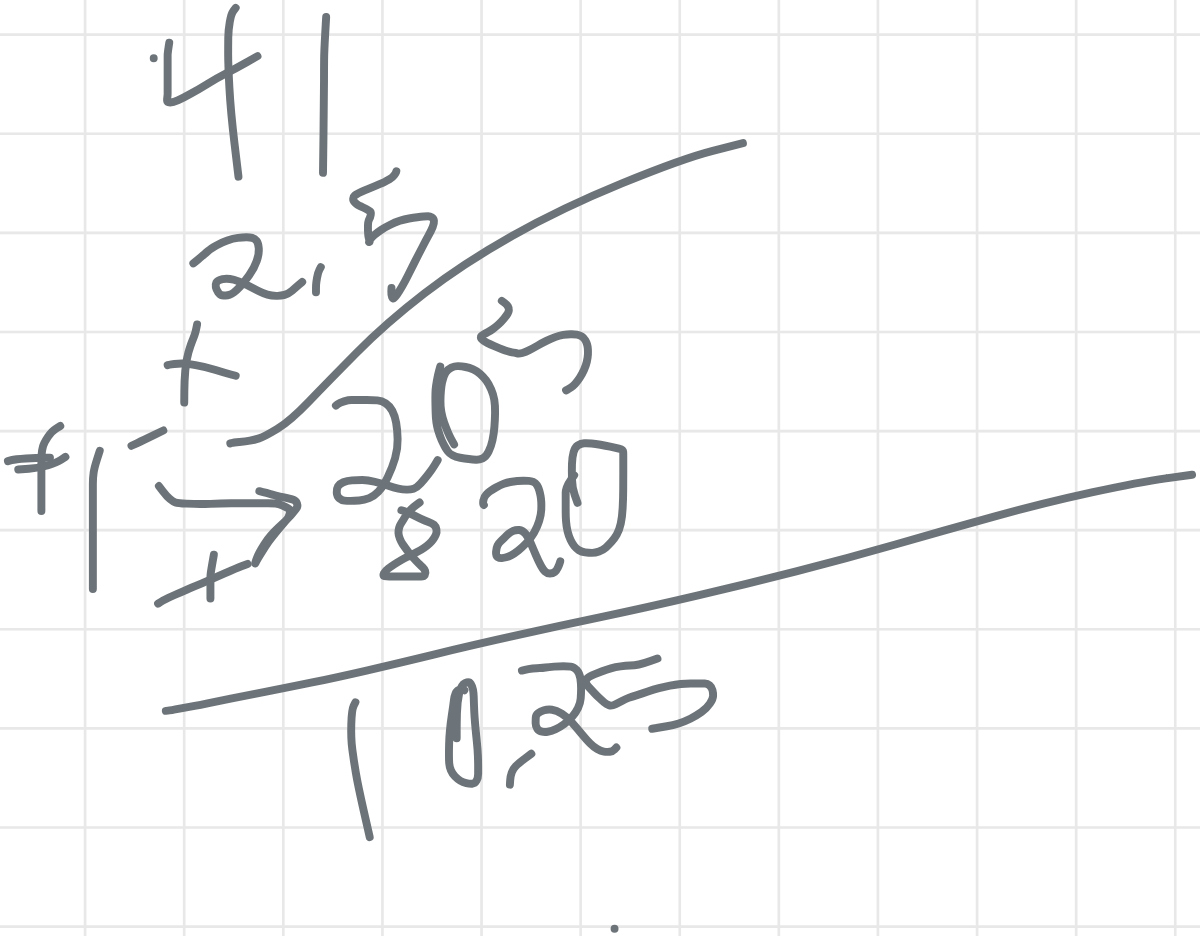 41
2,5
+
+1 205
820
+
10,25